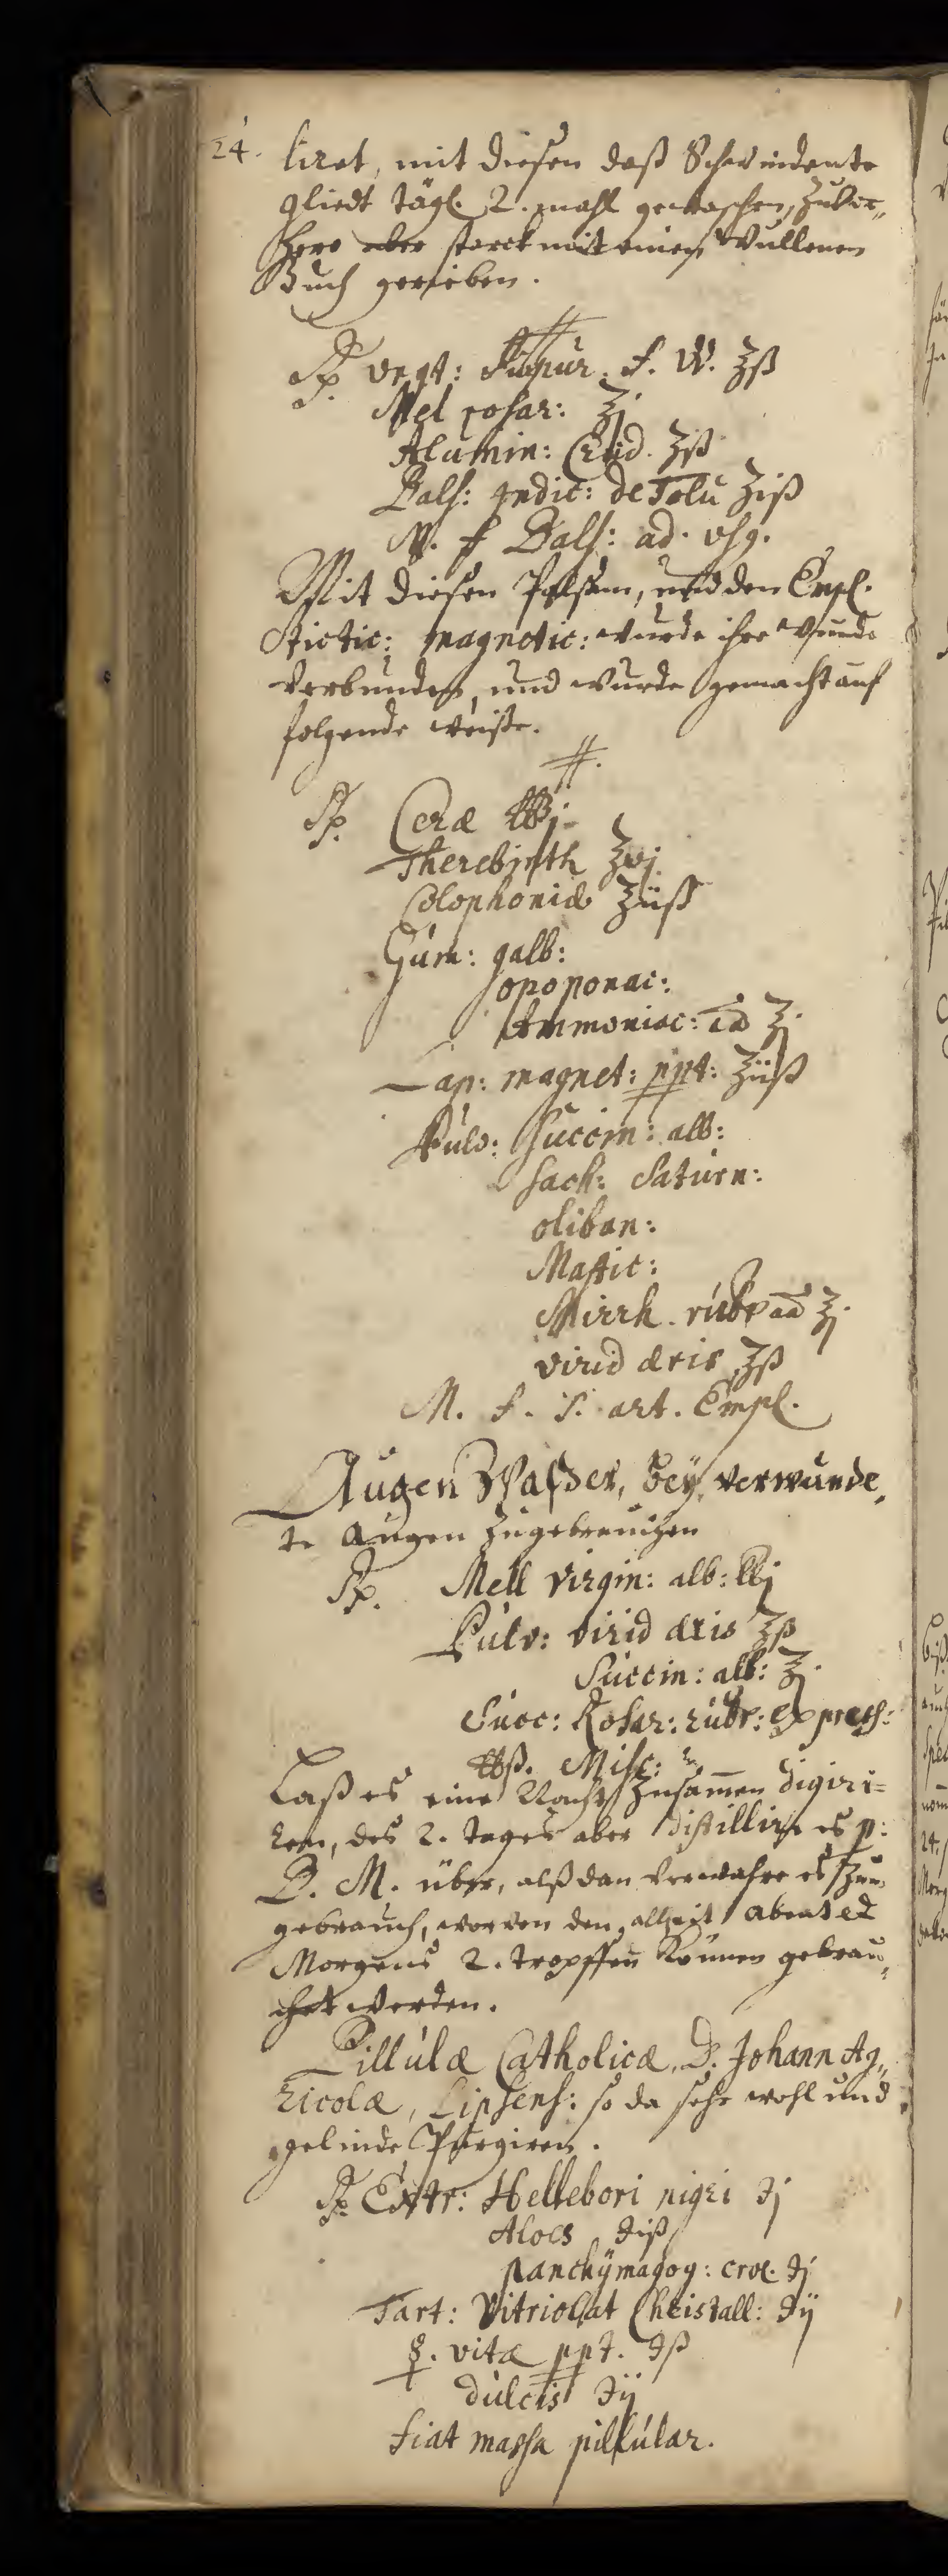 24. liret, mit diesen daß Schwindente
gliedt tägl. 2. mahl gewaschen, zuvor„
hero aber starck mit einen Wullenen
Tuch gerieben.
#
℞ Ungt: f. W. ʒß
Mel rosar: ʒj
Alumin: Crud. ʒß
Bals: Indic: de Tolu ʒiß
M. f Bals: ad. usg.
Mit diesen Palsam, und den Empl.
stictic: magnetic: wurde ihre Wunde
verbunden, und wurde gemacht auf
folgende weiße.
#.
℞. Ceræ ℔j
Therebinth ʒvj
Colophoniæ ʒiiß
Gum: galb:
opoponac:
Ammoniac: aa ʒj.
Lap: magnet: ppt: ʒiiß
Pulv: Succin: alb:
sach: Saturn:
oliban:
Mastic:
Mirrh. rubr aa ʒj.
virid æris ʒß
M. f. s. art. Empl.
Augen Waßer, bey verwunde„
te Augen zugebrauchen
℞. Mell virgin: alb: ℔j
Pulv: virid æris ʒß
Succin: alb: ʒj.
Succ: Rosar: rubr: express:
℔ß. Misc:
Laß es eine Nacht zusam̄en digiri=
ren, des 2. tages aber distillire es p:
B. M. über, alßdan verwahre es zum
gebrauch, worvon den allzeit abent et
Morgens 2. tropffen können gebrau„
chet werden.
Pillulæ Catholicæ, D. Johann Ag„
ricolæ, Lipsens: so da sehr wohl und
gelinde Purgiren.
℞. Extr: Hellebori nigri ℈j
Aloes ℈iß
panchÿmagog: crol. ℈j
Tart: Vitriolat Christall: ℈ij
☿. vitæ ppt. ℈ß
dulcis ℈ij
fiat massa pillular.